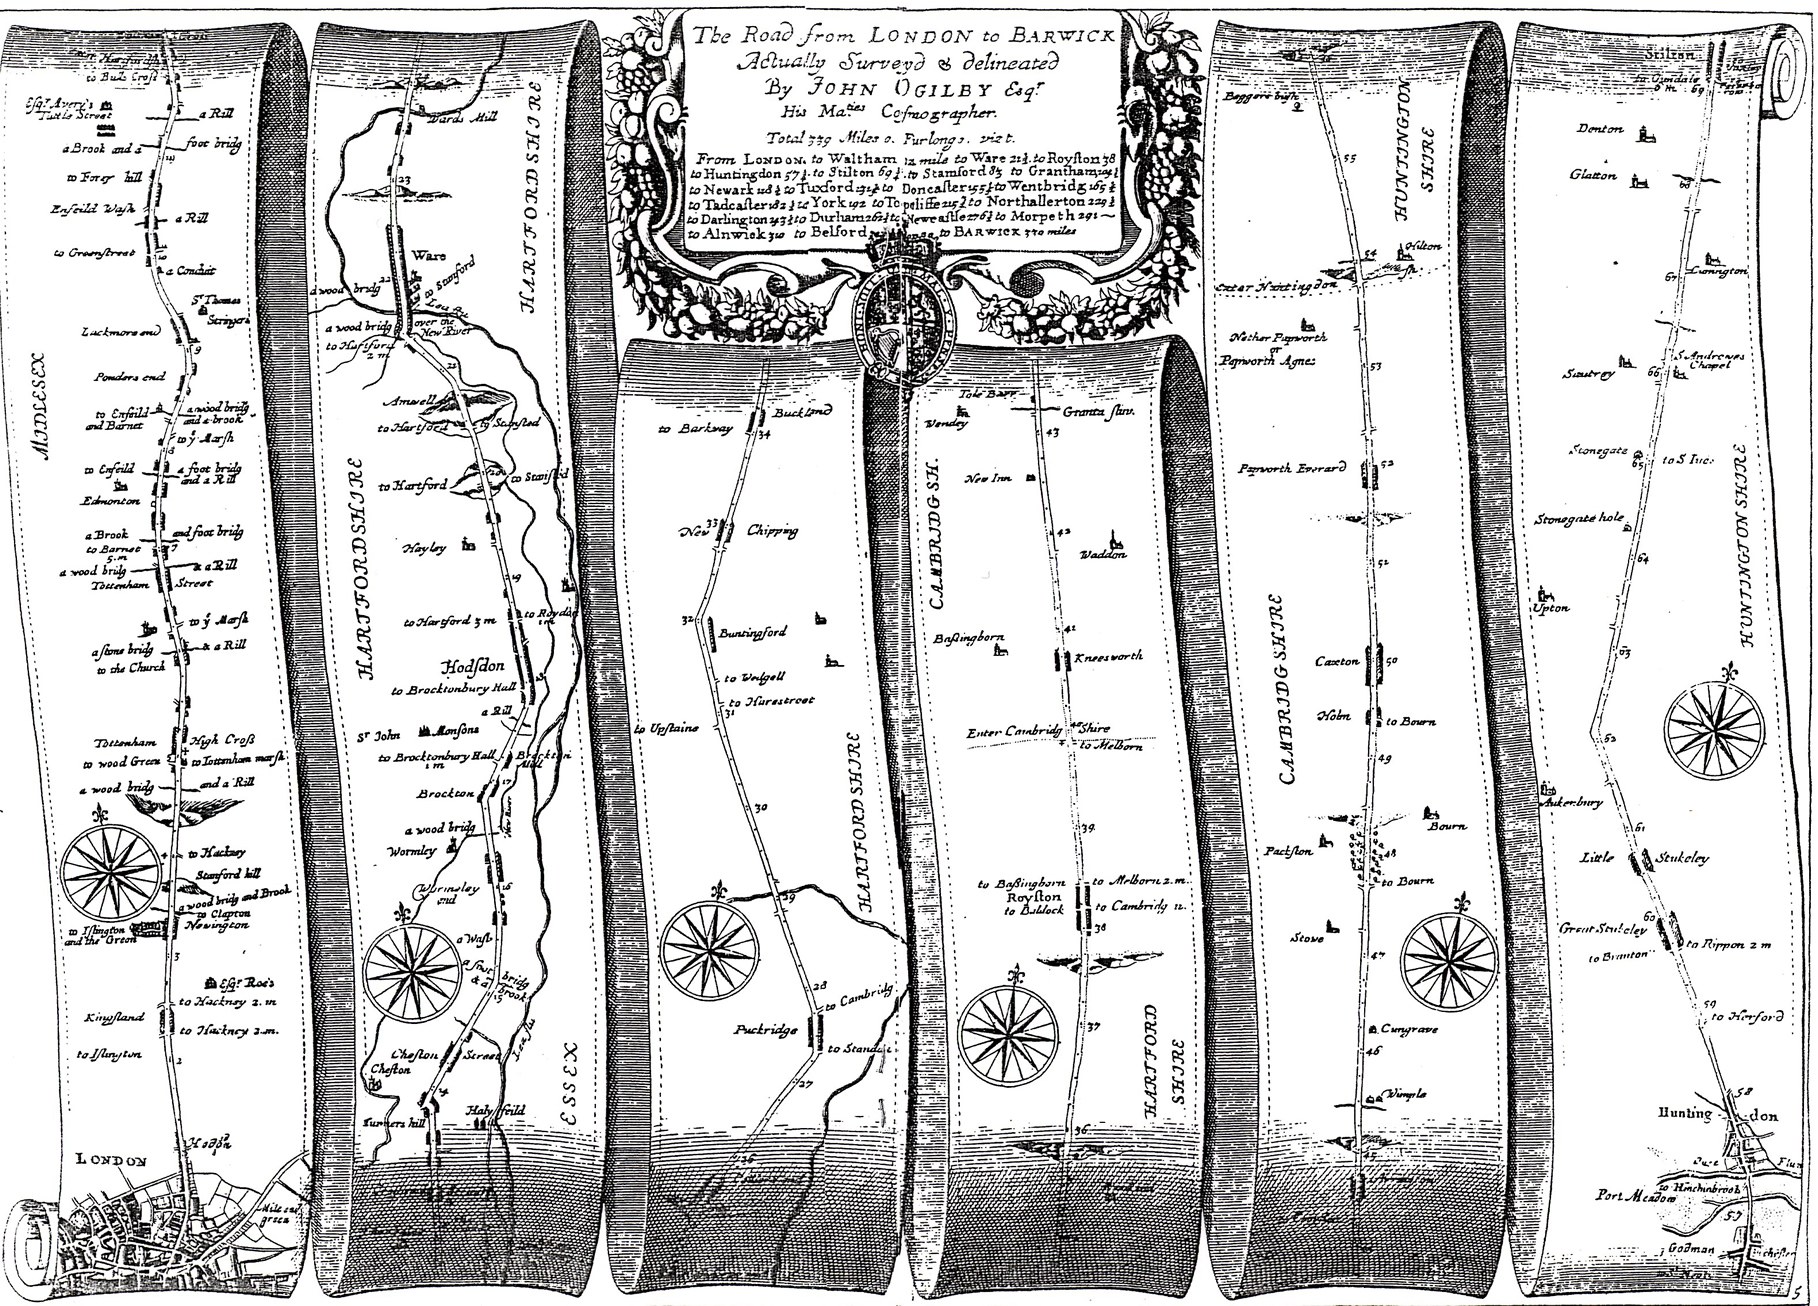 The Road from LONDON to BARWICK
Actually Survey'd & delineated
By JOHN OGILBY Esqr.
His Maties Cosmographer.
Total 339 Miles 0. Furlongs. vizt.
From LONDON. to Waltham 12 mile to Ware
to Royston 38
to Huntingdon 57½ to Stilton 69½ to Stamford 83 to Grantham
to Newark
to Tuxford
to Doncaster
to Wentbridg
to Tadcaster
to York 192 to Topcliffe
to Northallerton
to Darlington
to Durham
to Newcastle
to Morpeth 291
to Alnwick 310 to Belford
to BARWICK
miles
to Bulls Cross
Esqr. Avery's
Tuttle Street
a Rill
a Brook and a
foot bridg
to Forty hill
Enfeild Wash
a Rill
to Greenstreet
a Conduit
Sr. Thomas
Luckmore end
9
Ponders end
to Enfeild
and Barnet
a wood bridg
and a brook
to ye Marsh
8
to Enfeild
a foot bridg
and a Rill
Edmonton
a Brook
and foot bridg
to Barnet
5.m
7
a wood bridg
& a Rill
Tottenham
Street
to ye Marsh
a stone bridg
& a Rill
to the Church
MIDLESEX
Tottenham
High Cross
to wood Green
to Tottenham marsh
a wood bridg
and a Rill
4
to Hackney
Stanford hill
a wood bridg and Brook
to Clapton
to Islington
and the Green
Newington
3
Esqr. Roe's
to Hackney 2. m
Kingsland
to Hackney 2.m.
to Islington
2
LONDON
Mile end
green
Wards Mill
HARTFORDSHIRE
23
Ware
22
a wood bridg
to Stanford
a wood bridg
over the
New River
to Hartford
2 m
21
Amwell
to Hartford
to Stansted
20
to Hartford
Hayley
19
to Hartford 3 m
to Roydon
1 m
HARTFORDSHIRE
Hodsdon
18
to Brocktonbury Hall
a Rill
Sr John
Monsons
to Brocktonbury Hall
1 m
Brockton
Mill
17
Brockton
New River
a wood bridg
Wormley
Wormeley
end
16
a Wash
bridg
brook
15
Cheston
Street
Cheston
14
Turners hill
Haly
feild
ESSEX
Buckland
to Barkway
34
New
33
Chipping
32
Buntingford
to Wedgell
to Harestreet
31
to Upstaine
30
HARTFORDSHIRE
29
28
to Cambridg
Puckridge
27
36
Tole Barr
Wendey
Granta fluv.
43
New Inn
42
Waddon
CAMBRIDG SH.
41
Bassingborn
Kneesworth
40
Enter Cambridg
Shire
to Melborn
39
to Bassingborn
to Melborn 2.m.
Royston
to Baldock
to Cambridg 12.
38
37
HARTFORD
SHIRE
36
Beggers bush
HUNTINGTON
SHIRE
55
54
Hilton
Enter Huntingdon
Nether Papworth
or
Papworth Agnes
53
Papworth Everard
52
51
CAMBRIDG SHIRE
Caxton
50
Holm
to Bourn
49
Bourn
Packston
48
to Bourn
Stowe
47
Cungrave
46
Wimple
Stilton
to Oundale
6 m
69
Denton
Glatton
68
Cunnington
67
St. Andrewes
Chapel
Sautrey
66
Stonegate
65
to St Ives
Stonegate hole
64
HUNTINGTON SHIRE
Upton
63
62
Aukenbury
61
Little
Stukeley
60
Great Stukeley
to Rippon 2 m
to Branton
59
to Herford
58
Hunting
don
to Hinchinbrook
Port Meadow
57
Godman
chester
5